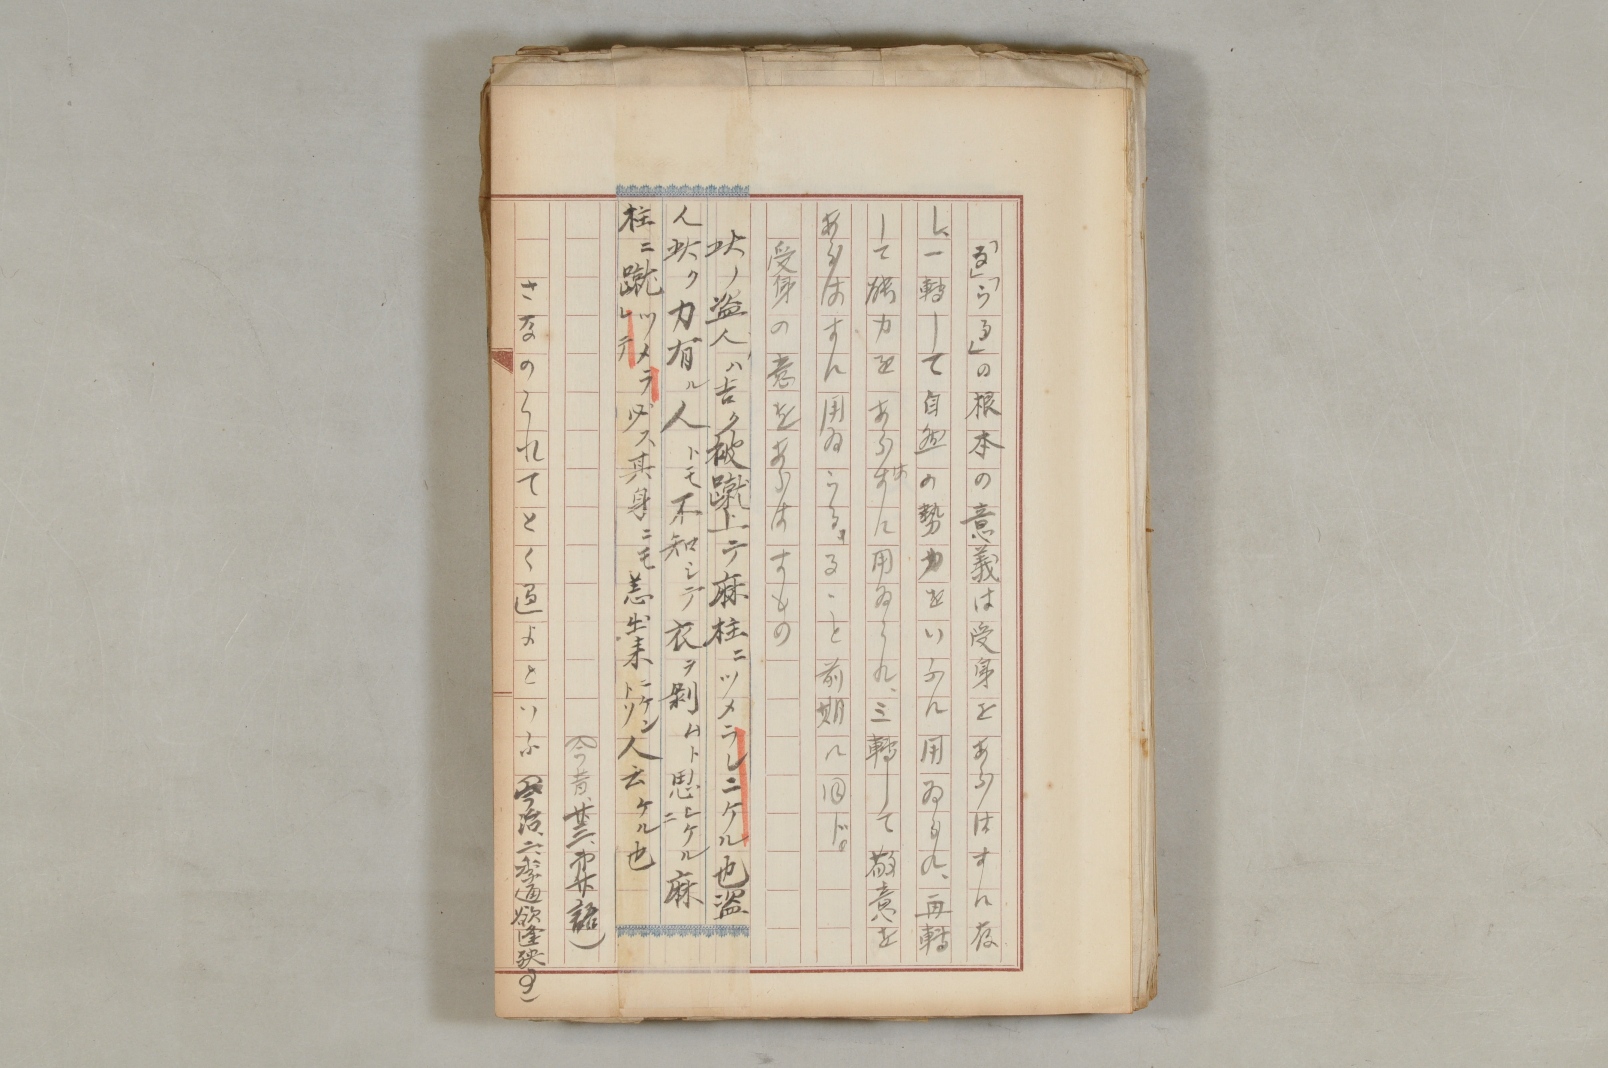 「る」「らる」の根本の意義は受身をあらはすに存
し、一轉して自然の勢力をいふに用ゐられ、再轉
して能力をあらはすに用ゐられ、三轉して敬意を
あらはすに用ゐらる。ること前期に同じ。
受身の意をあらはすもの
此ノ盗人ハ吉ク被蹴上テ麻柱ニツメラレニケル也盗
人此ク力有ル人トモ不知シテ衣ヲ剥ムト思ヒケルニ麻
柱ニ蹴ツメラレテ必ス其身ニモ恙出来ニケントソ人云ケル也
(今昔、廿三、第廿語)
さなのられてとく過よといふ(今昔、